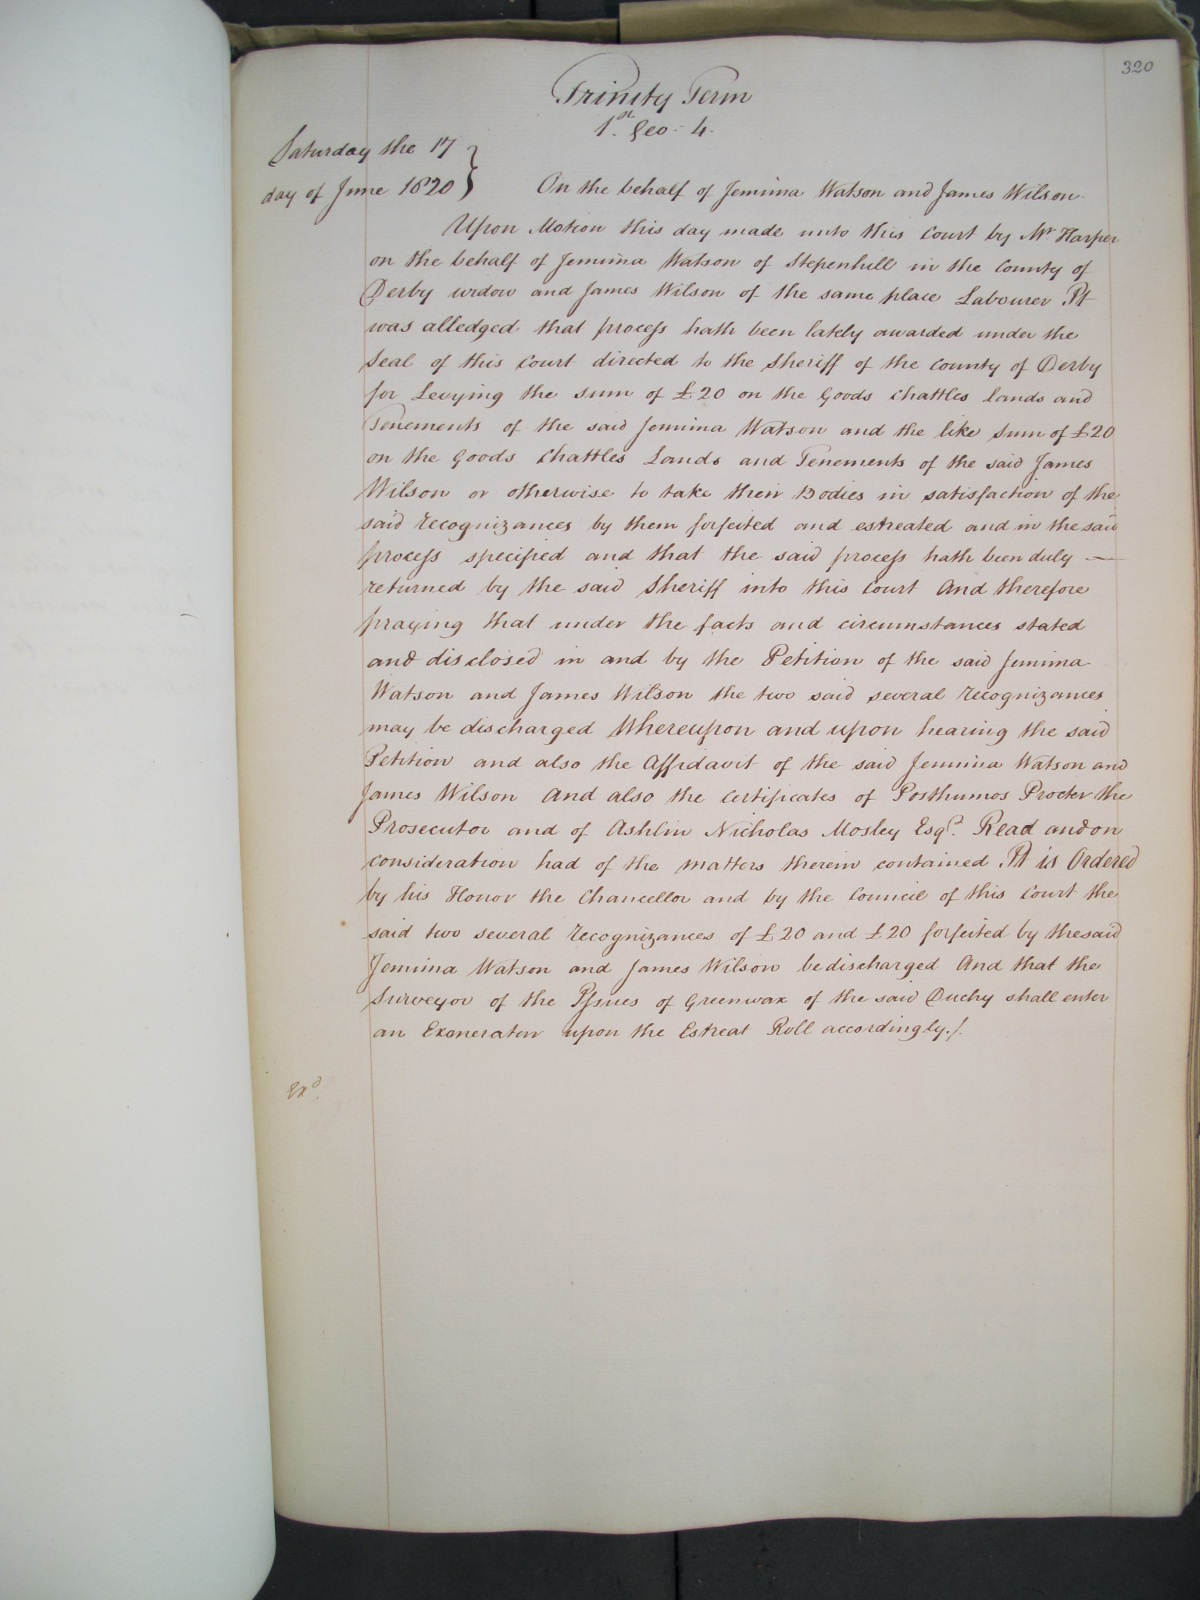 320
Trinity Term
1st Geo. 4.
Saturday the 17
day of June 1820 }
On the behalf of Jemima Watson and James Wilson.
Upon Motion this day made unto this Court by Mr Harper
on the behalf of Jemima Watson of Stepenhill in the County of
Derby widow and James Wilson of the same place Labourer It
was alledged that process hath been lately awarded under the
Seal of this Court directed to the Sheriff of the County of Derby
for Levying the sum of £20 on the Goods Chattles Lands and
Tenements of the said Jemima Watson and the like Sum of £20
on the Goods Chattles Lands and Tenements of the said James
Wilson or otherwise to take their Bodies in satisfaction of the
said recognizances by them forfeited and estreated and in the said
process specified and that the said process hath been duly —
returned by the said Sheriff into this Court And therefore
praying that under the facts and circumstances stated
and disclosed in and by the Petition of the said Jemima
Watson and James Wilson the two said several recognizances
may be discharged Whereupon and upon hearing the said
Petition and also the Affidavit of the said Jemima Watson and
James Wilson And also the Certificates of Posthumos Procter the
Prosecutor and of Ashlin Nicholas Mosley Esqr. Read and on
consideration had of the matters therein contained It is Ordered
by his Honor the Chancellor and by the Council of this Court the
said two several recognizances of £20 and £20 forfeited by the said
Jemima Watson and James Wilson be discharged And that the
Surveyor of the Issues of Greenwax of the said Duchy shall enter
an Exoneratur upon the Estreat Roll accordingly./.
Exd.